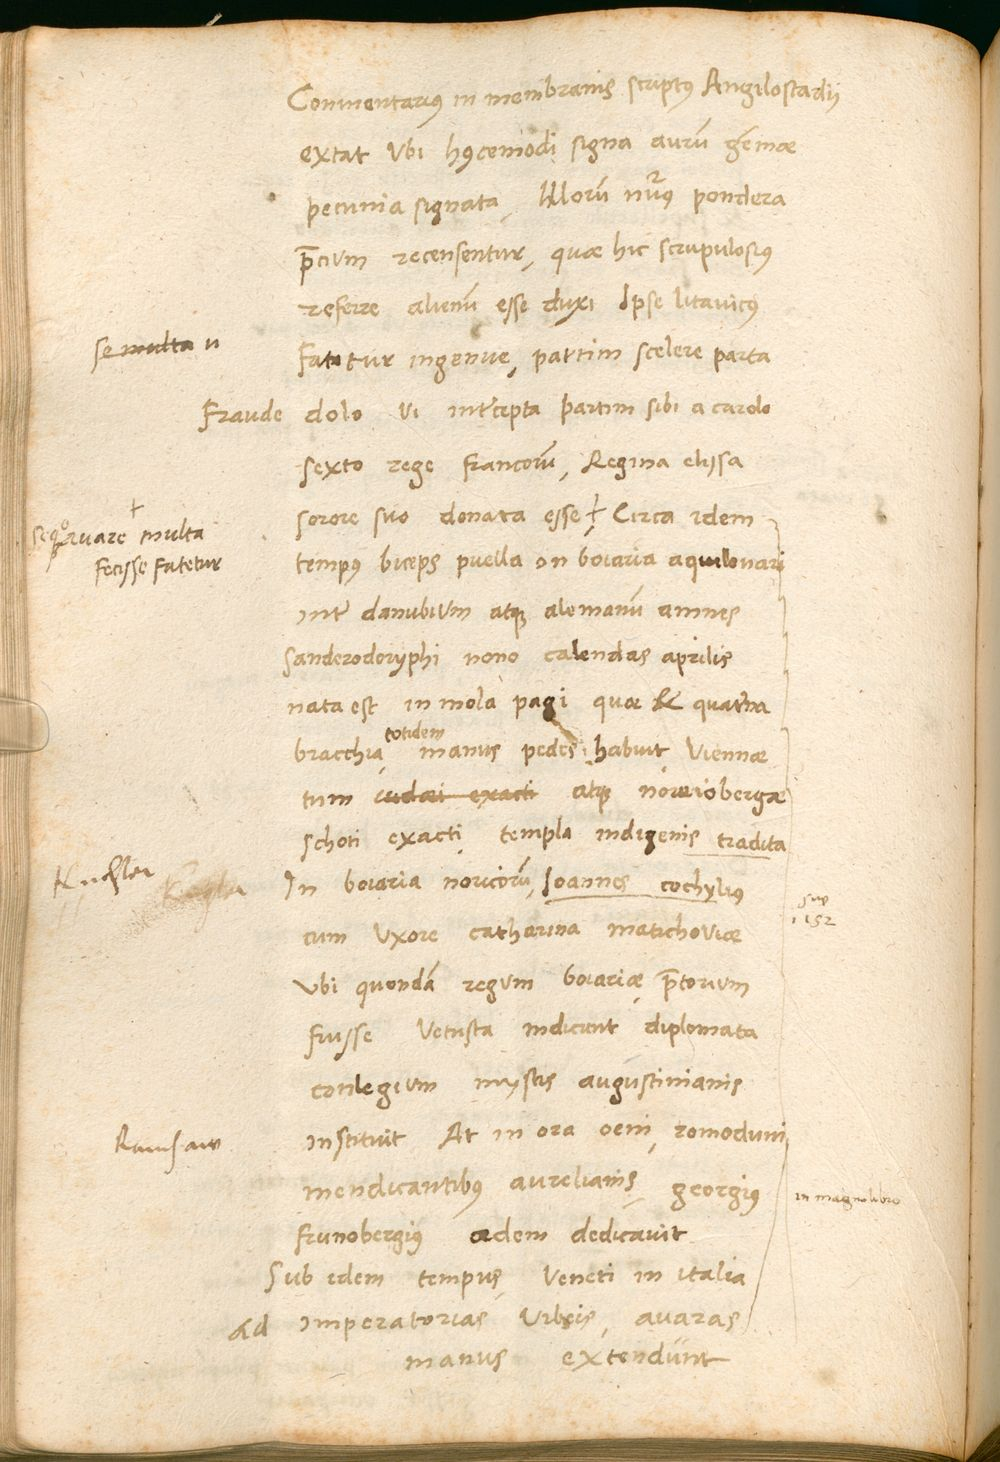 Commentarius in membranis scriptus Angilostadij
extat Ubi huiscemodi signa aurum gemmae
pecunia signata, Illorum numerus pondera
precium recensentur, quae hic scrupulosius
referre alienum esse duxi Ipse litavicus
se multa u
Fatetur ingenue, partim scelere parta
Fraude dolo vi intercepta partim sibi a carolo
sexto rege francorum, Regina elisa
sorore suo donata esse † Circa idem
† multa
fecisse Fatetur
tempus biceps puella in boiaria aquilonari
inter danubium atque alemanum amnes
Sanderodoryphi nono calendas aprilis
nata est in mola pagi quae & quaterna
bracchia, totidem manus pedes habuit Viennae
tum iudaei exacti atque noreiobergae
schoti exacti, templa indigenis tradita
Kuchler
In boiaria noricorum, Ioannes cochylius
sup
1152
cum Uxore catharina matichoviae
Ubi quondam regum boiariae pretorium
fuisse Vetusta indicant diplomata
conlegium mystis augustinianis
instituit At in ora oeni, romoduni
Ramsaw
mendicantibus aurelianis, georgius
in magno libro
frunobergius aedem dedicavit
Sub idem tempus, Veneti in italia
Ad imperatorias Urbeis, avaras
manus extendunt